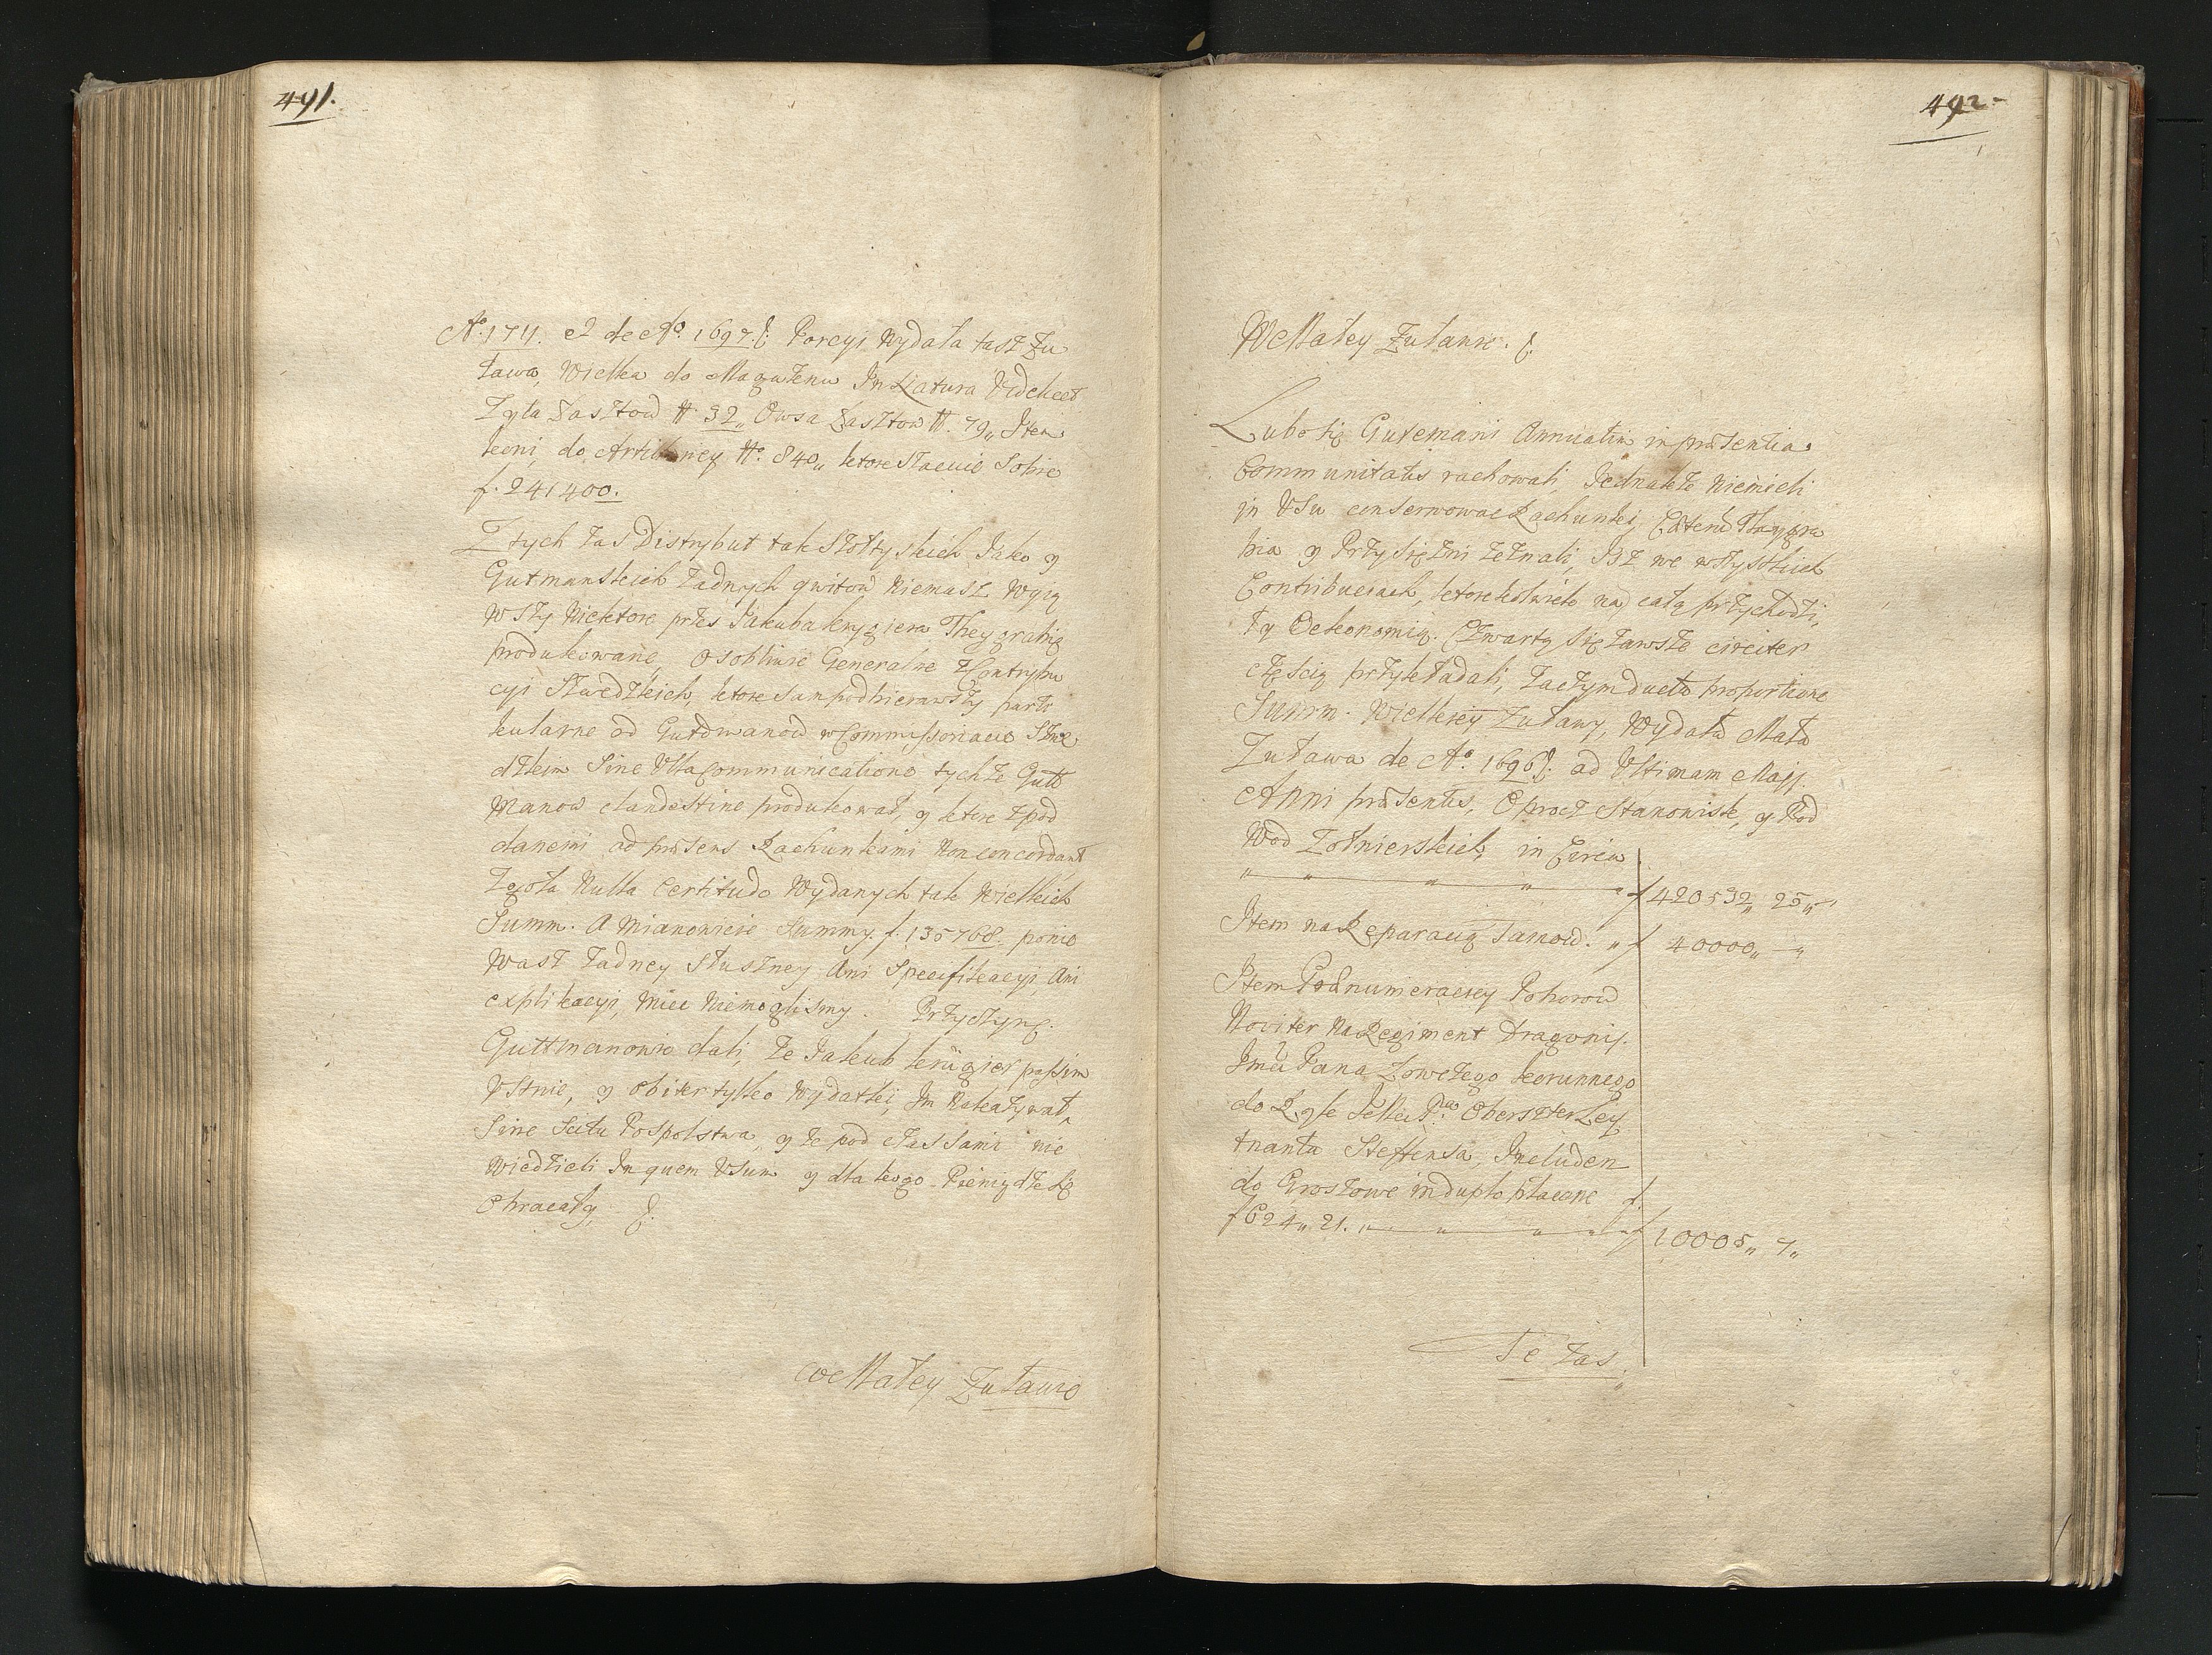 491.
Aº. 1711. et de Aº. 1697. Porcyi Wydała tasz Żu
ława, Wielka do Magazenu In Natura Videlicet
Zyta Łasztow # 32„ Owsa Łasztow # 79„ Item
koni, do Artileriey #. 840„ ktore Stacuie Sobie
f. 241400.
Z tych zas Distrybut tak Szołtyskich Iako y
Gutmanskich żadnych qwitow Niemasz Wyią
wszy Niektore przes Jakuba krygiera Theygrabię
produkowane, Osobliwie Generalne z Contrybu
cyi Szwedzkich, ktore Sam podbierawszy party
kularne od Gutdmanow w Commissoriacie Szwe
dzkim Sine Ulla Communicatione tychże Gutt
manow clandestine produkował, y ktore z pod
danemi ad præsens Rachunkami Non concordant
Zgoła Nulla Certitudo Wydanych tak Wielkich
Summ. A Mianowicie Summy f. 135768. ponie
wasz żadney słuszney Ani Specifikacyi Ani
explikacyi, miec Niemoglismy. Przyczynę.
Guttmanowie dali, że Jakub krügier passim
Ustnie, y obiter tylko Wydatki, Im Nakazywał,
Sine Scitu Pospolstwa, y że pod czas Sami nie
Wiedzieli In quem Usum y dla kogo Pieniądze Się
Obracały.
we Małey Żuławie
492.
We Małey Żuławie.
Lubo Się Gutemani Annuatim in præsentia
Communitatis rachowali, Jednakże Nie mieli
in Usu conserwowac Rachunki, Cæterū Thaygra
bia y Przysiężni zeznali, Isz we wszystkich
Contribuciach, ktorekolwiek na całą przychodzi,
ły Oekonomię. Czwartą Się zawsze circiter
częscią przykładali, zaczym ducta proportione
Summ. Wielkiey Żuławy, Wydała Mała
Żuława de Aº. 1696. ad Ultimam Maij.
Anni præsentis, Oprocz Stanowisk, y Pod
Wod Żołnierskich, in Circa
„ „ „ „ „ f 420532„ 25„
Item na Reparacią Tamow. „ f 40000„
Item Podnumeraciey Poborow
Noviter Na Regiment Dragonij.
Jmci Pana Łowczego koronnego
do Rąk Jeº Mci Pna Oberszter Ley
tnanta Steffensa, Includen
do Groszowe in duplo płacone f.
f 624„ 21. „ „ „ „ f 10005„ 7„
Te zas